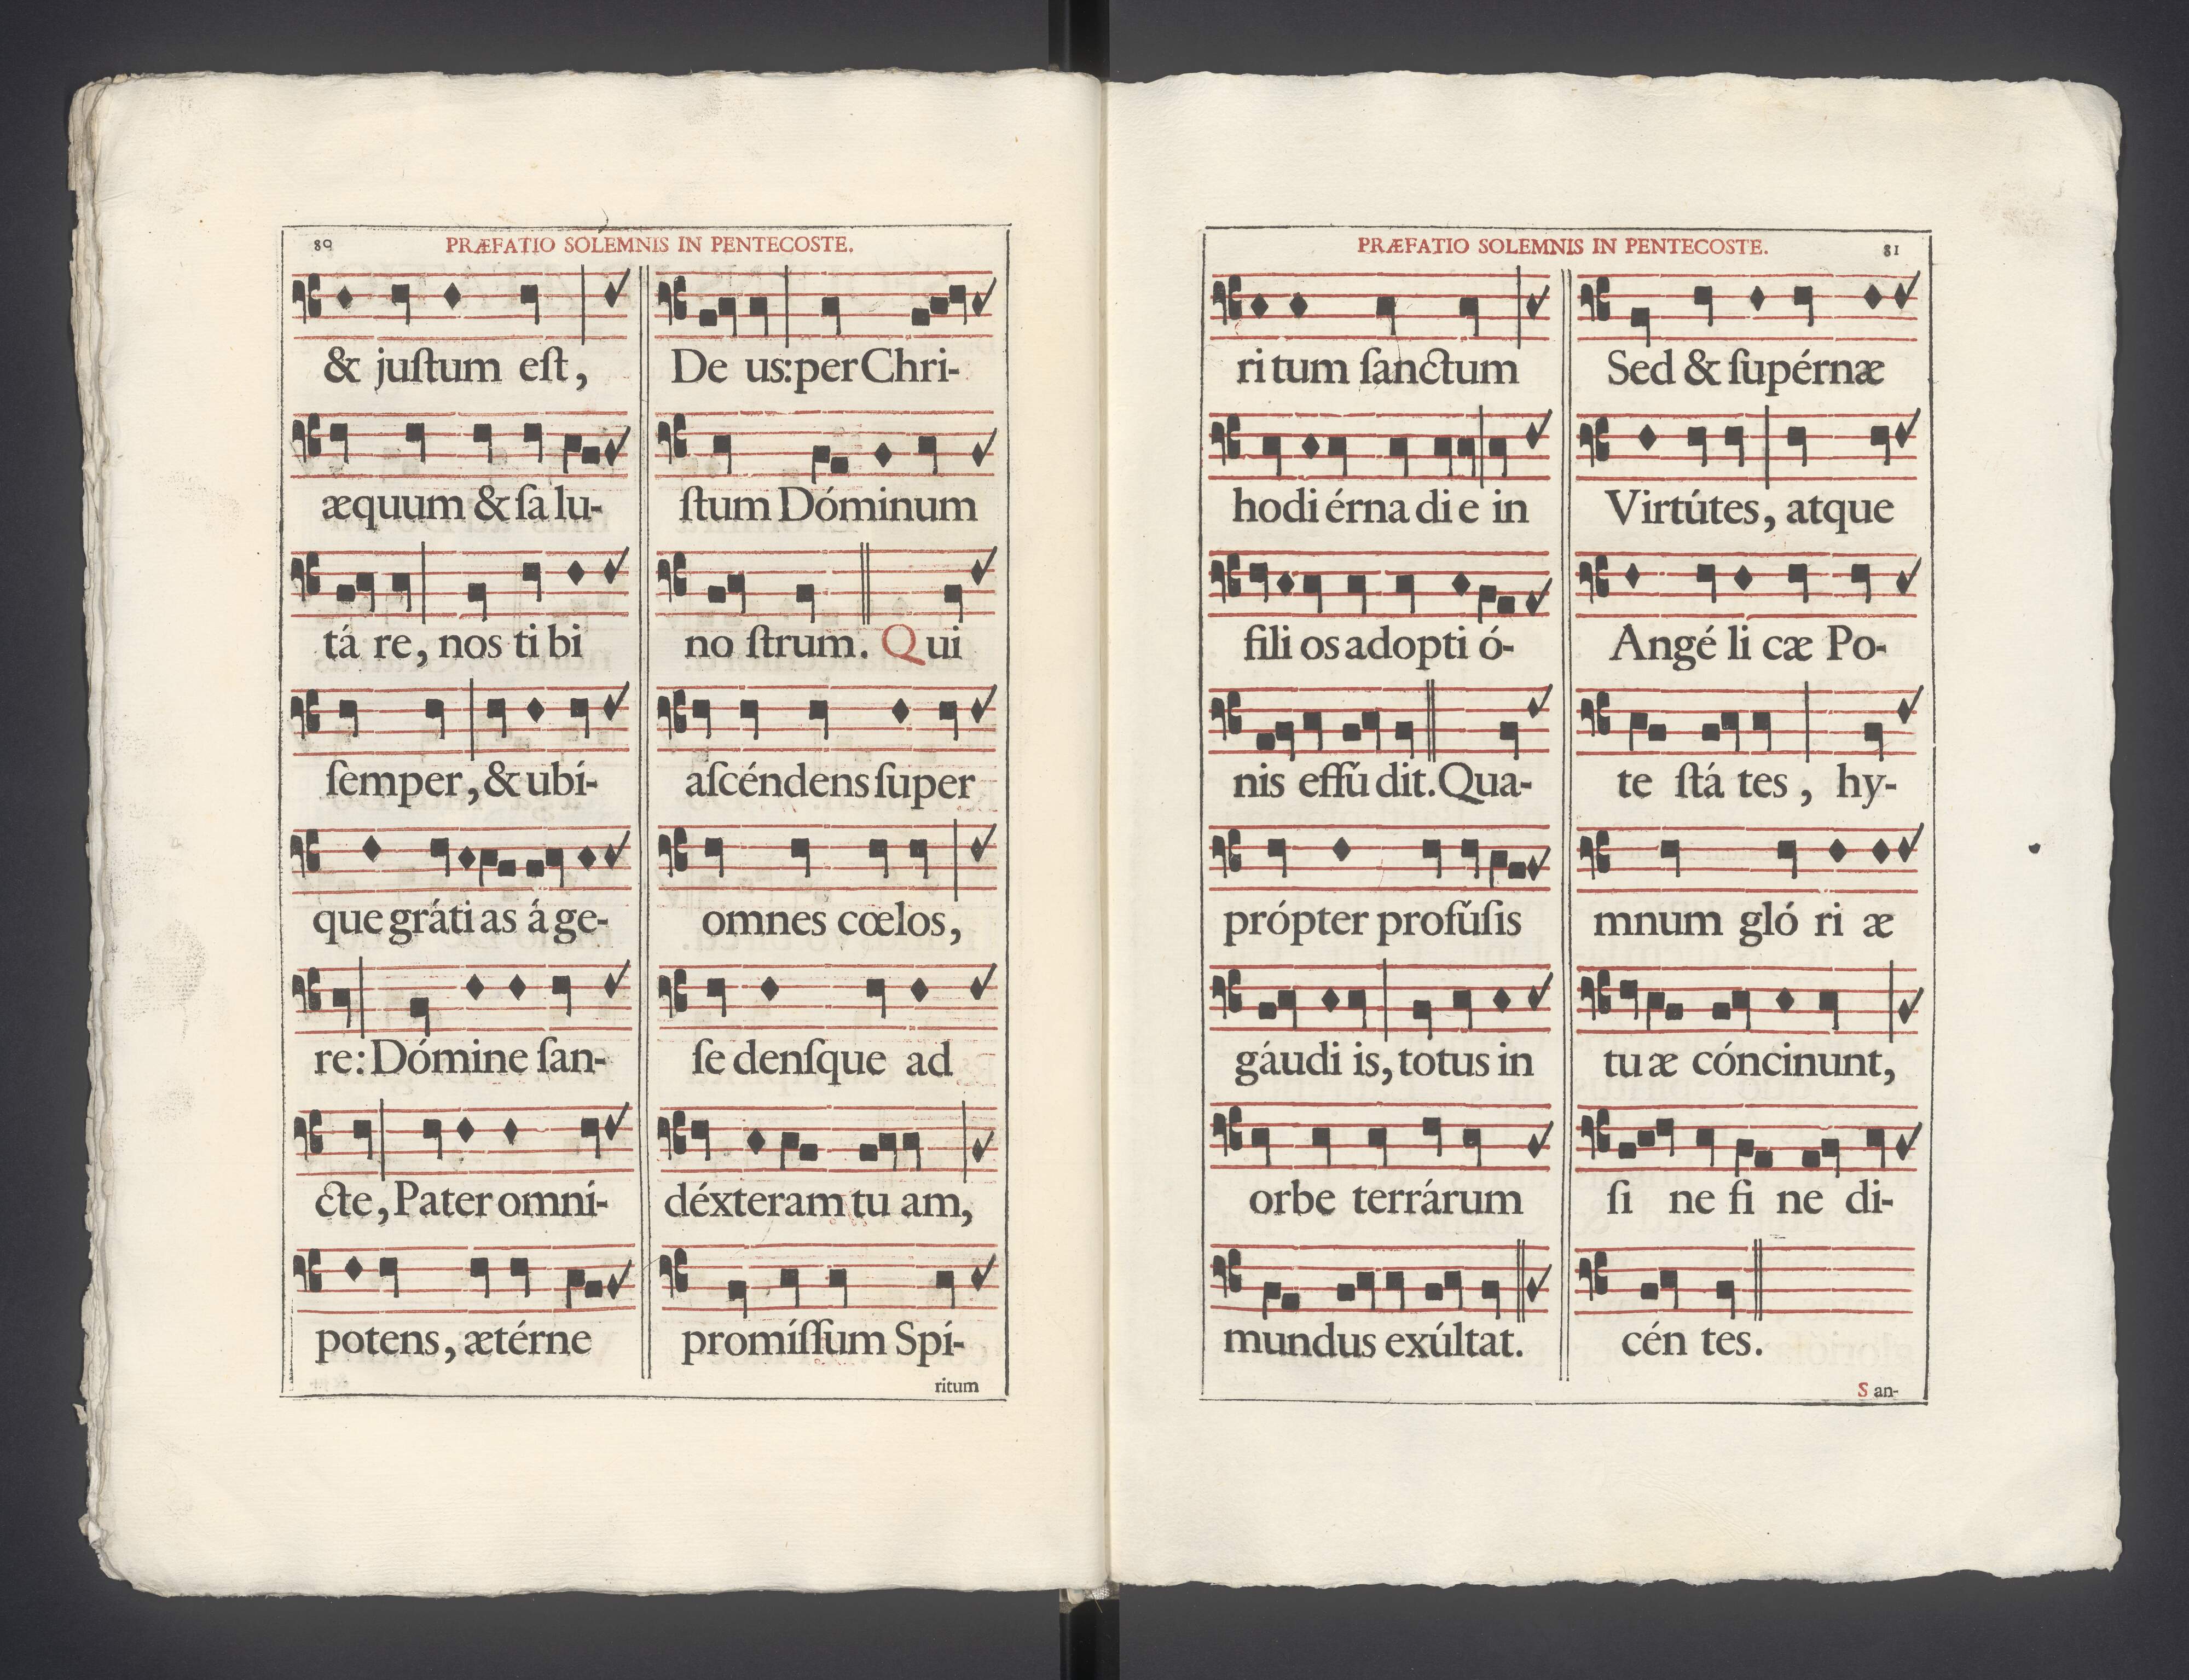 80
PRÆFATIO SOLEMNIS IN PENTECOSTE.
& juſtum eſt,
æquum & ſa lu-
tá re, nos ti bi
ſemper, & ubí-
que gráti as á ge-
re: Dómine ſan-
cte, Pater omní-
potens, ætérne
De us: per Chri-
ſtum Dóminum
no ſtrum. Qui
aſcéndens ſuper
omnes cœlos,
ſe denſque ad
déxteram tu am,
promíſſum Spí-
ritum
PRÆFATIO SOLEMNIS IN PENTECOSTE.
81
ri tum ſanctum
hodi érna di e in
fili os adopti ó-
nis effú dit. Qua-
própter profúſis
gáudi is, totus in
orbe terrárum
mundus exúltat.
Sed & ſupérnæ
Virtútes, atque
Angé li cæ Po-
te ſtá tes, hy-
mnum gló ri æ
tu æ cóncinunt,
ſi ne fi ne di-
cén tes.
San-